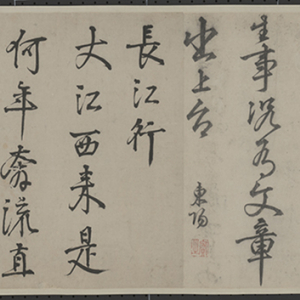 生事況為文章
坐上台
東陽
長江行
大江西来是
何年奔流直